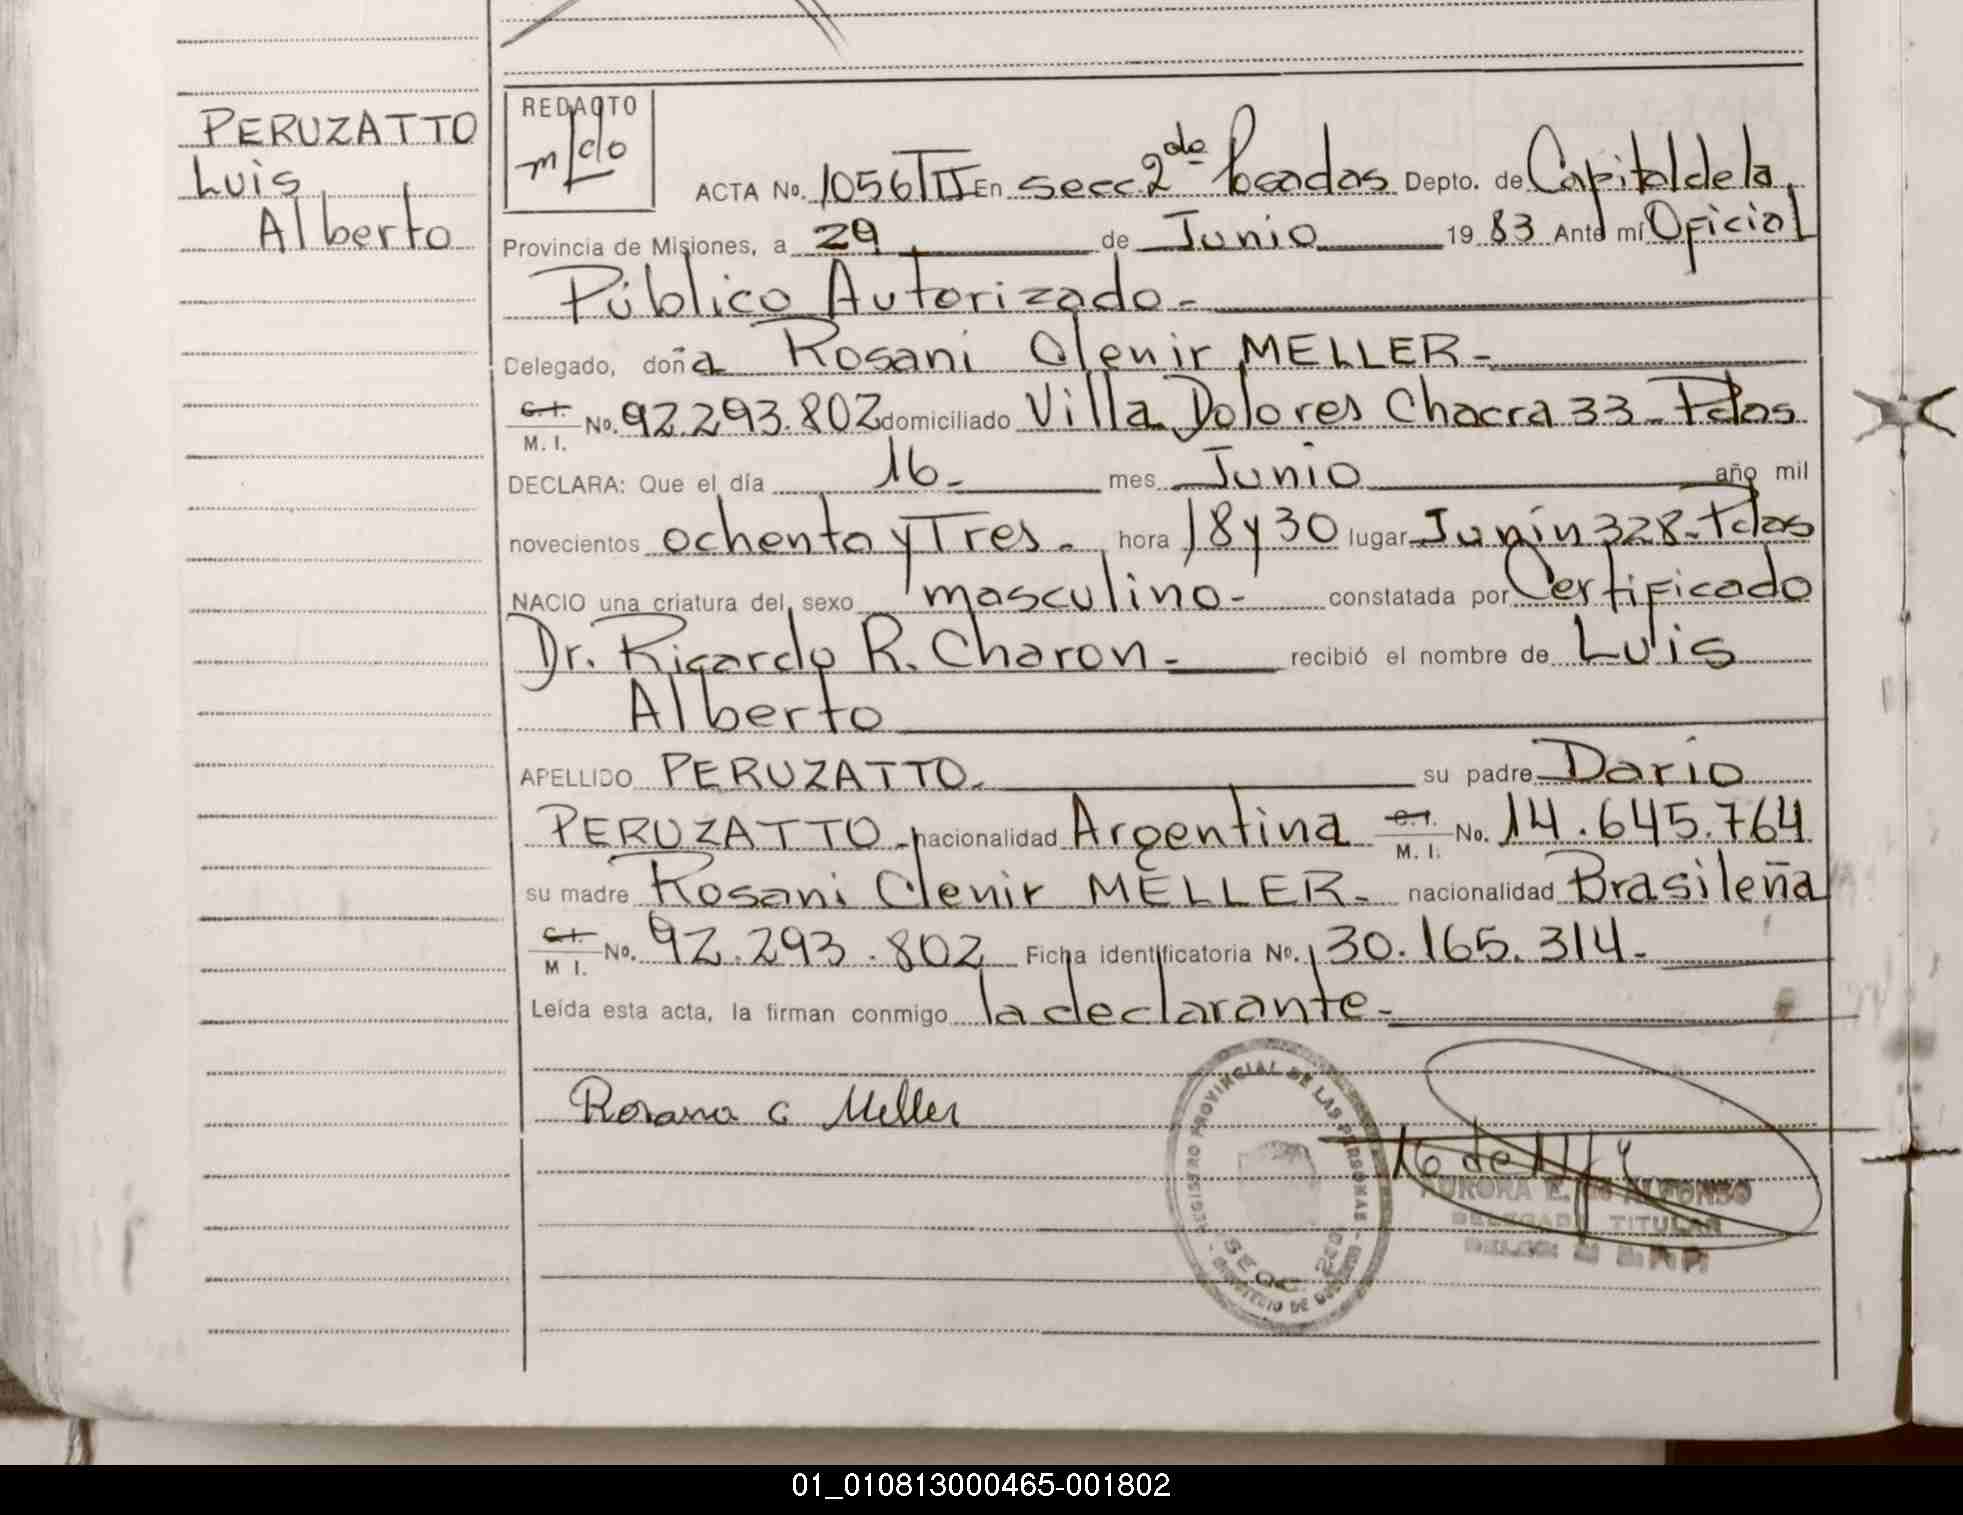 PERUZATTO
Luis
Alberto
REDACTO
ACTA No. 1056 T II En secc 2da Posadas Depto. de Capital de la
Provincia de Misiones, a 29 de Junio 19 83 Ante mí Oficial
Público Autorizado-
Delegado, doña Rosani Clenir MELLER-
C.I. M. I. No. 92.293.802 domiciliado Villa Dolores Chacra 33-Pdas
DECLARA: Que el día 16- mes Junio año mil
novecientos ochenta y Tres- hora 18 y 30 lugar Junín 328-Pdas
NACIO una criatura del sexo masculino- constatada por Certificado
Dr. Ricardo R. Charon- recibió el nombre de Luis
Alberto
APELLIDO PERUZATTO- su padre Dario
PERUZATTO- nacionalidad Argentina C.I. M. I. No. 14.645.764
su madre Rosani Clenir MELLER- nacionalidad Brasileña
C.I. M I. No. 92.293.802 Ficha identificatoria No. 30.165.314-
Leída esta acta, la firman conmigo la declarante-
Rosana C Meller
REGISTRO PROVINCIAL DE LAS PERSONAS - MINISTERIO DE GOBIERNO
SECC. 2da
AURORA E. de ALFONSO
DELEGADA TITULAR
01_010813000465-001802